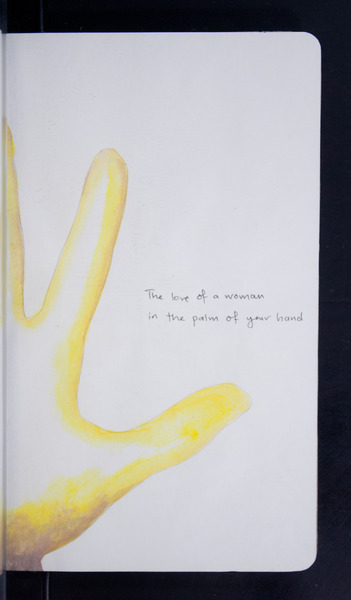 The love of a woman
in the palm of your hand